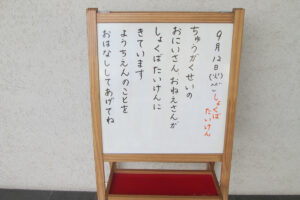 9月12日(火)〜
しょくば
たいけん
ちゅうがくせいの
おにいさん おねえさんが
しょくばたいけんに
きています
ようちえんのことを
おはなししてあげてね